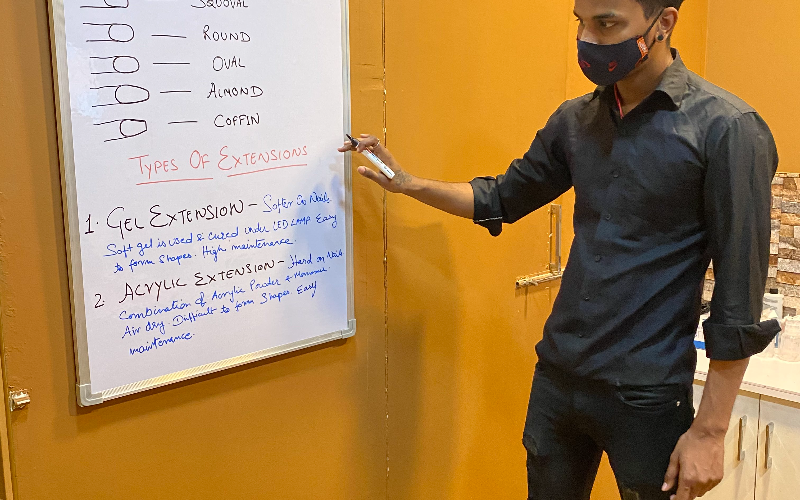 SQUOVAL
— ROUND
— OVAL
— ALMOND
— COFFIN
TYPES OF EXTENSIONS
1. GEL EXTENSION - Softer On Nails
Soft gel is used & cured under LED LAMP Easy
to form shapes. High maintenance.
2. ACRYLIC EXTENSION - Hard on Nails
Combination of Acrylic Powder +
Air dry. Difficult to form Shapes. Easy
maintenance.